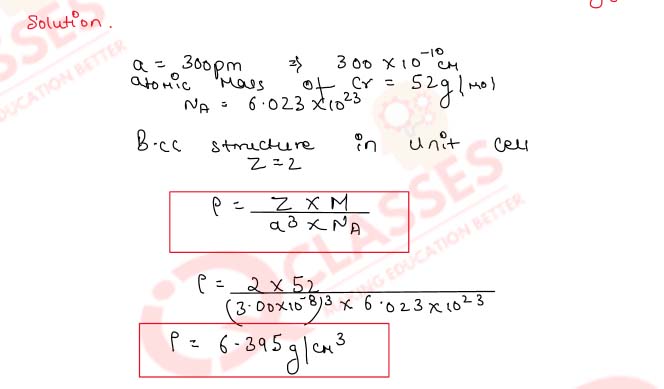 Solution.
a = 300pm ⇒ 300 × 10⁻¹⁰ cm
atomic mass of Cr = 52g/mol
NA = 6.023 × 10²³
B.cc structure in unit cell
Z = 2
ρ = Z × M / a³ × NA
ρ = 2 × 52 / (3.00×10⁻⁸)³ × 6.023 × 10²³
ρ = 6.395 g/cm³
CLASSES
MAKING EDUCATION BETTER
EDUCATION BETTER
SSES